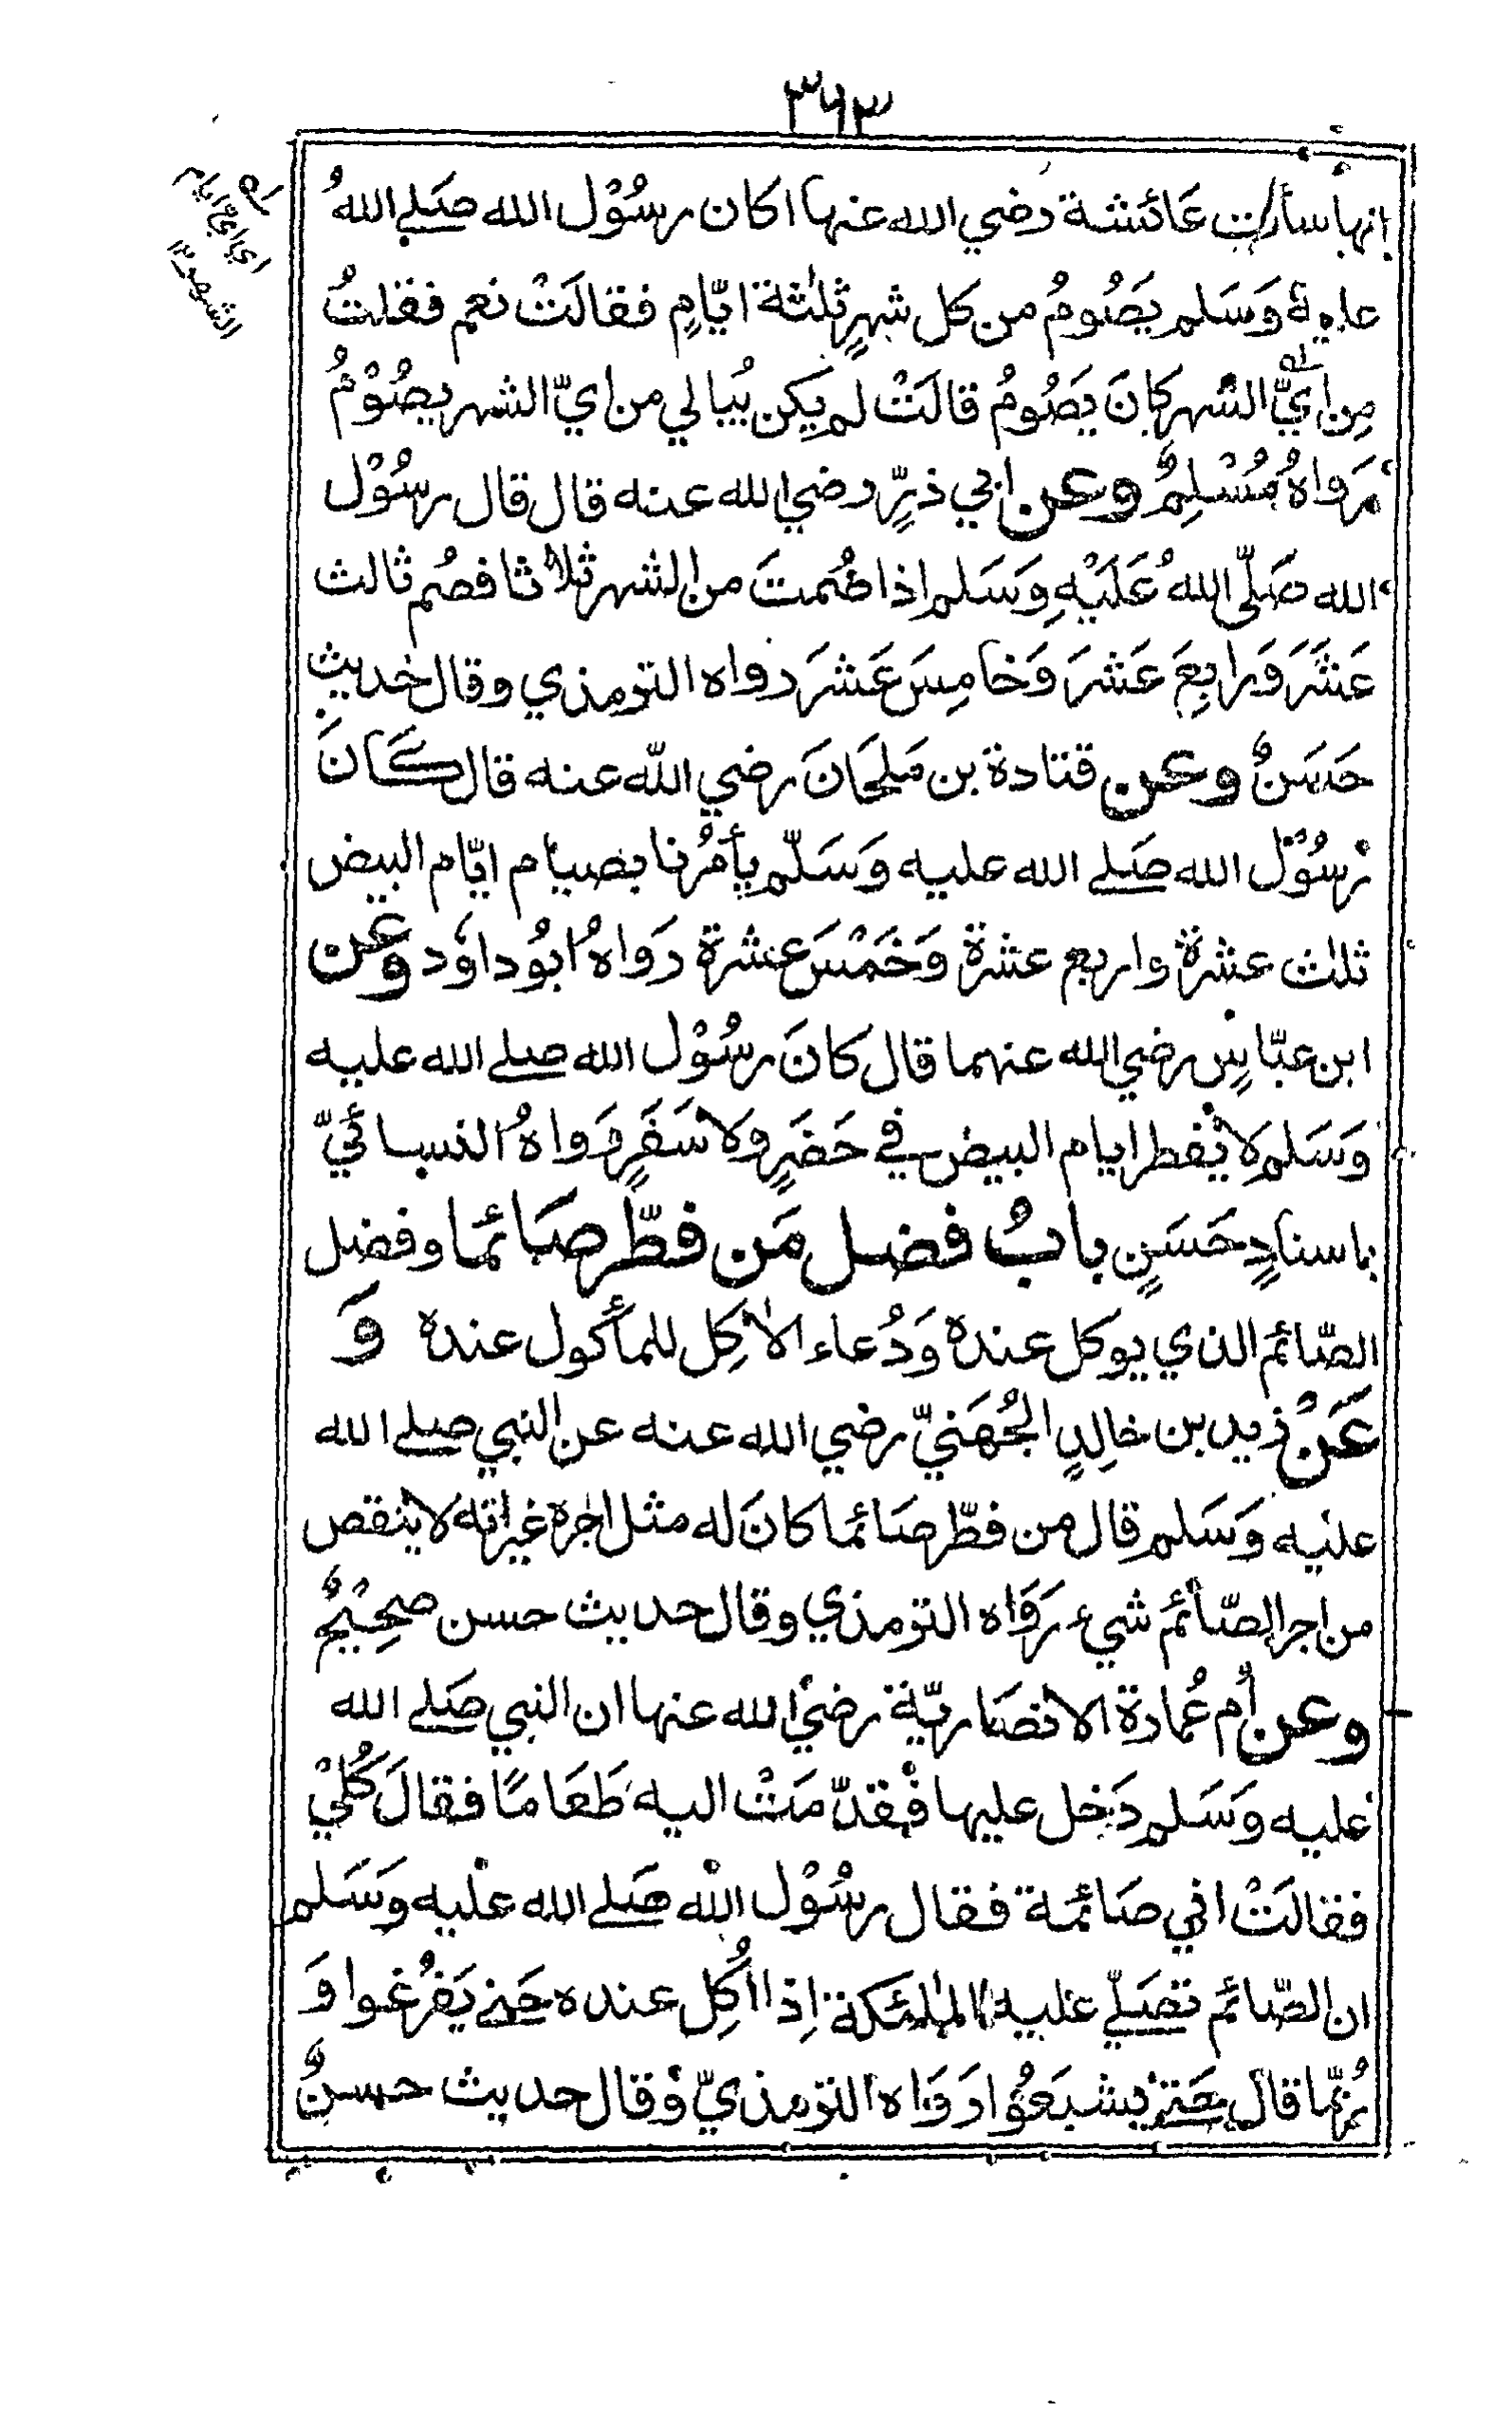 ٣٦٣
انها سألت عَائشة رضي الله عنها اكان رسُوْل الله صَلى اللهُ
عليه وَسَلم يَصُومُ من كل شهرٍ ثلٰثة ايّامٍ فقالَتْ نعم فقلتُ
مِن ايِّ الشهر كانَ يَصُومُ قالَتْ لم يكن يُبالي من ايّ الشهر يصُوْمُ
رَوَاهُ مُسْلِمٌ وعن ابي ذرٍّ رضي الله عنه قال قال رسُوْل
الله صَلّى اللهُ عَلَيْهِ وَسَلم اذا صُمتَ من الشهر ثلاثا فصُم ثالث
عَشَرَ وَرابِعَ عَشَرَ وَخامِسَ عَشَرَ رواه الترمذي وقال حديث
حَسَنٌ وعن قتادة بن مَلحَانَ رضي اللّه عنه قال كَانَ
رسُوْل الله صَلى الله عليه وَسَلّم يأمُرُنا بصيام ايّام البيض
ثلٰث عشرة واربع عشرة وَخَمْسَ عشرة رَواهُ ابُو داوٗد وعن
ابن عبّاسٍ رضي الله عنهما قال كانَ رسُوْل الله صلى الله عليه
وَسَلم لا يُفطر ايام البيض في حَضَرٍ ولا سَفَرٍ رَوَاهُ النسائيّ
باسنادٍ حَسَنٍ بابُ فضل مَن فطّر صَائما وفضل
الصّائم الذي يوكل عنده وَدُعاء الاٰكِل للمأكول عنده وَ
عَنْ زيد بن خالِدٍ الجُهَنيّ رضي الله عنه عن النبي صلى الله
عليه وَسَلم قال من فطّر صَائما كانَ له مثل اجره غير انّه لا ينقص
من اجر الصّائم شيء رَوَاه الترمذي وقال حديث حسن صحِيْحٌ
وعن اُم عُمارة الانصَاريّة رضي الله عنها ان النبي صَلى الله
عليه وَسَلم دَخل عليها فقدّمَتْ اليه طَعَامًا فقالَ كُلِيْ
فقالَتْ اني صَائمة فقال رسُوْل الله صَلى الله عليه وَسَلم
ان الصّائم تصَلّي عليه الملٰئكة اِذا اُكِل عنده حَتى يَفرُغوا وَ
رُبّما قالَ حَتى يشبَعُوا رَوَاه الترمذيّ وَقال حديث حسنٌ
اي ايّ ايام
الشهر